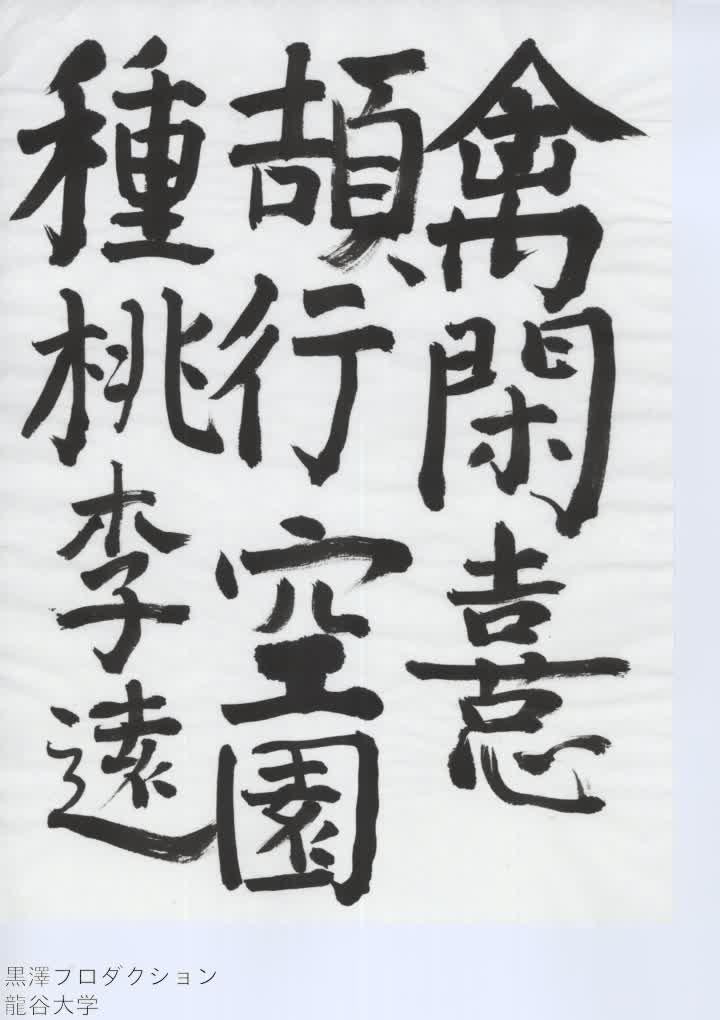 禽閑憙
頡行空園
種桃李遠
黒澤プロダクション
龍谷大学